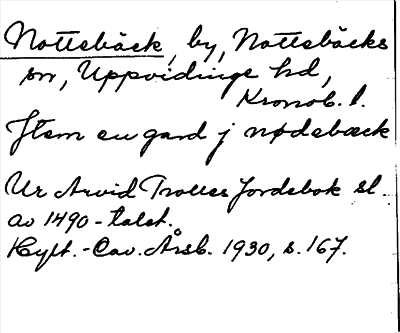 Nottebäck, by, Nottebäcks
sn, Uppvidinge hd,
Kronob. l.
Jtem en gard j nødebæck
Ur Arvid Trolles Jordebok sl.
av 1490-talet.
Hylt.-Cav. Årsb. 1930, s. 167.